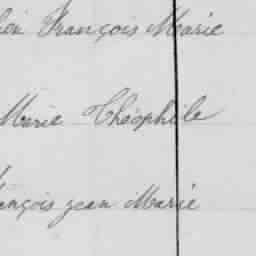 François Marie
Marie Théophile
ançois jean Marie